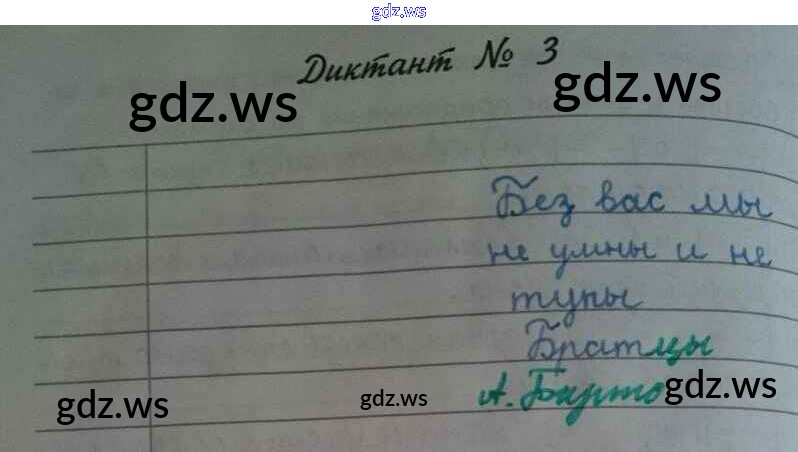 gdz.ws
Диктант № 3
gdz.ws
gdz.ws
Без вас мы
не умны и не
тупы
Братцы
А. Барто
gdz.ws
gdz.ws
gdz.ws